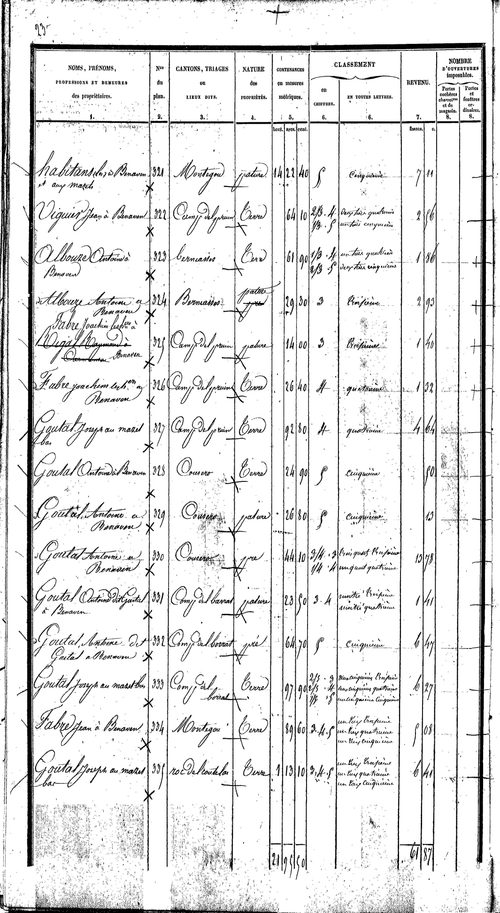 23
NOMS, PRÉNOMS,
PROFESSIONS ET DEMEURES
des propriétaires.
Nos
du
plan.
CANTONS, TRIAGES
ou
LIEUX DITS.
NATURE
des
PROPRIÉTÉS.
CONTENANCES
en mesures
métriques.
CLASSEMENT
en
CHIFFRES.
EN TOUTES LETTRES.
REVENU.
NOMBRE
D'OUVERTURES
imposables.
1. 2. 3. 4. 5. 6. 6. 7. 8. 8.
hect. ares. cent. francs. c.
habitans de Benaven 321 Montegou pature 14 22 40 5 Cinquième 7 11
et aux mazets
Viguier Jean à Benaven 322 Camp del prun Terre 64 10 2/3 - 4 deux tiers quatrième 2 56
1/3 - 5 un tiers cinquième
Albouze Antoine à 323 Bermasses Terre 61 90 1/3 - 4 un tiers quatrième 1 86
Benaven 2/3 - 5 deux tiers cinquième
Albouze Antoine a 324 Bermasses pature 29 30 3 Troisième 2 93
Benaven
Fabre Joachim
325 Camp del prun pature 14 00 3 Troisième 1 40
Benaven
Fabre Joachim a 326 Camp del prun Terre 26 40 4 quatrième 1 32
Benaven
Goutal Joseph au mazet 327 Camp del prun Terre 92 80 4 quatrième 4 64
bas
Goutal Antoine à Benaven 328 Cousero Terre 24 90 5 Cinquième 50
Goutal Antoine a 329 Cousero pature 26 80 5 Cinquième 13
Benaven
Goutal Antoine a 330 Cousero pre 44 10 3/4 - 3 Trois quarts Troisième 13 78
Benaven 1/4 - 4 un quart quatrième
Goutal Antoine dit Goutal 331 Camp del barrat pature 23 50 3 - 4 moitié Troisième 1 41
à Benaven moitié quatrième
Goutal Antoine dit 332 Camp del barrat pré 64 70 5 Cinquième 6 47
Goutal à Benaven
Goutal Joseph au mazet bas 333 Camp del Terre 97 90 2/5 - 3 deux cinquièmes Troisième 6 27
barrat 2/5 - 4 deux cinquièmes quatrième
1/5 - 5 un cinquième cinquième
Fabre Jean à Benaven 334 Montegou Terre 89 60 3-4-5 un tiers troisième 5 08
un tiers quatrième
un tiers cinquième
Goutal Joseph au mazet 335 Terre 1 13 10 3-4-5 un tiers troisième 6 41
bas un tiers quatrième
un tiers cinquième
21 95 50 61 87